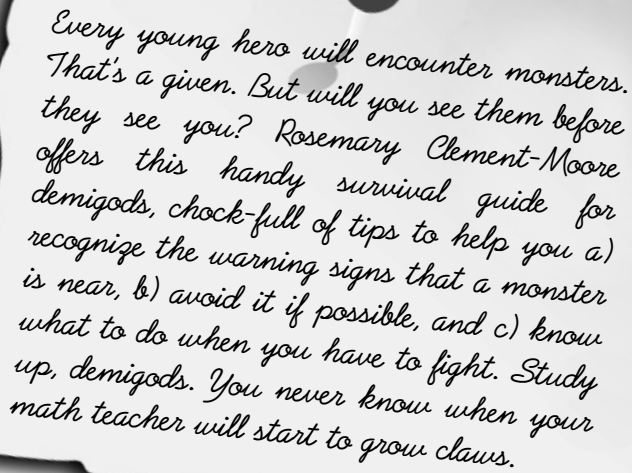 Every young hero will encounter monsters.
That's a given. But will you see them before
they see you? Rosemary Clement-Moore
offers this handy survival guide for
demigods, chock-full of tips to help you a)
recognize the warning signs that a monster
is near, b) avoid it if possible, and c) know
what to do when you have to fight. Study
up, demigods. You never know when your
math teacher will start to grow claws.